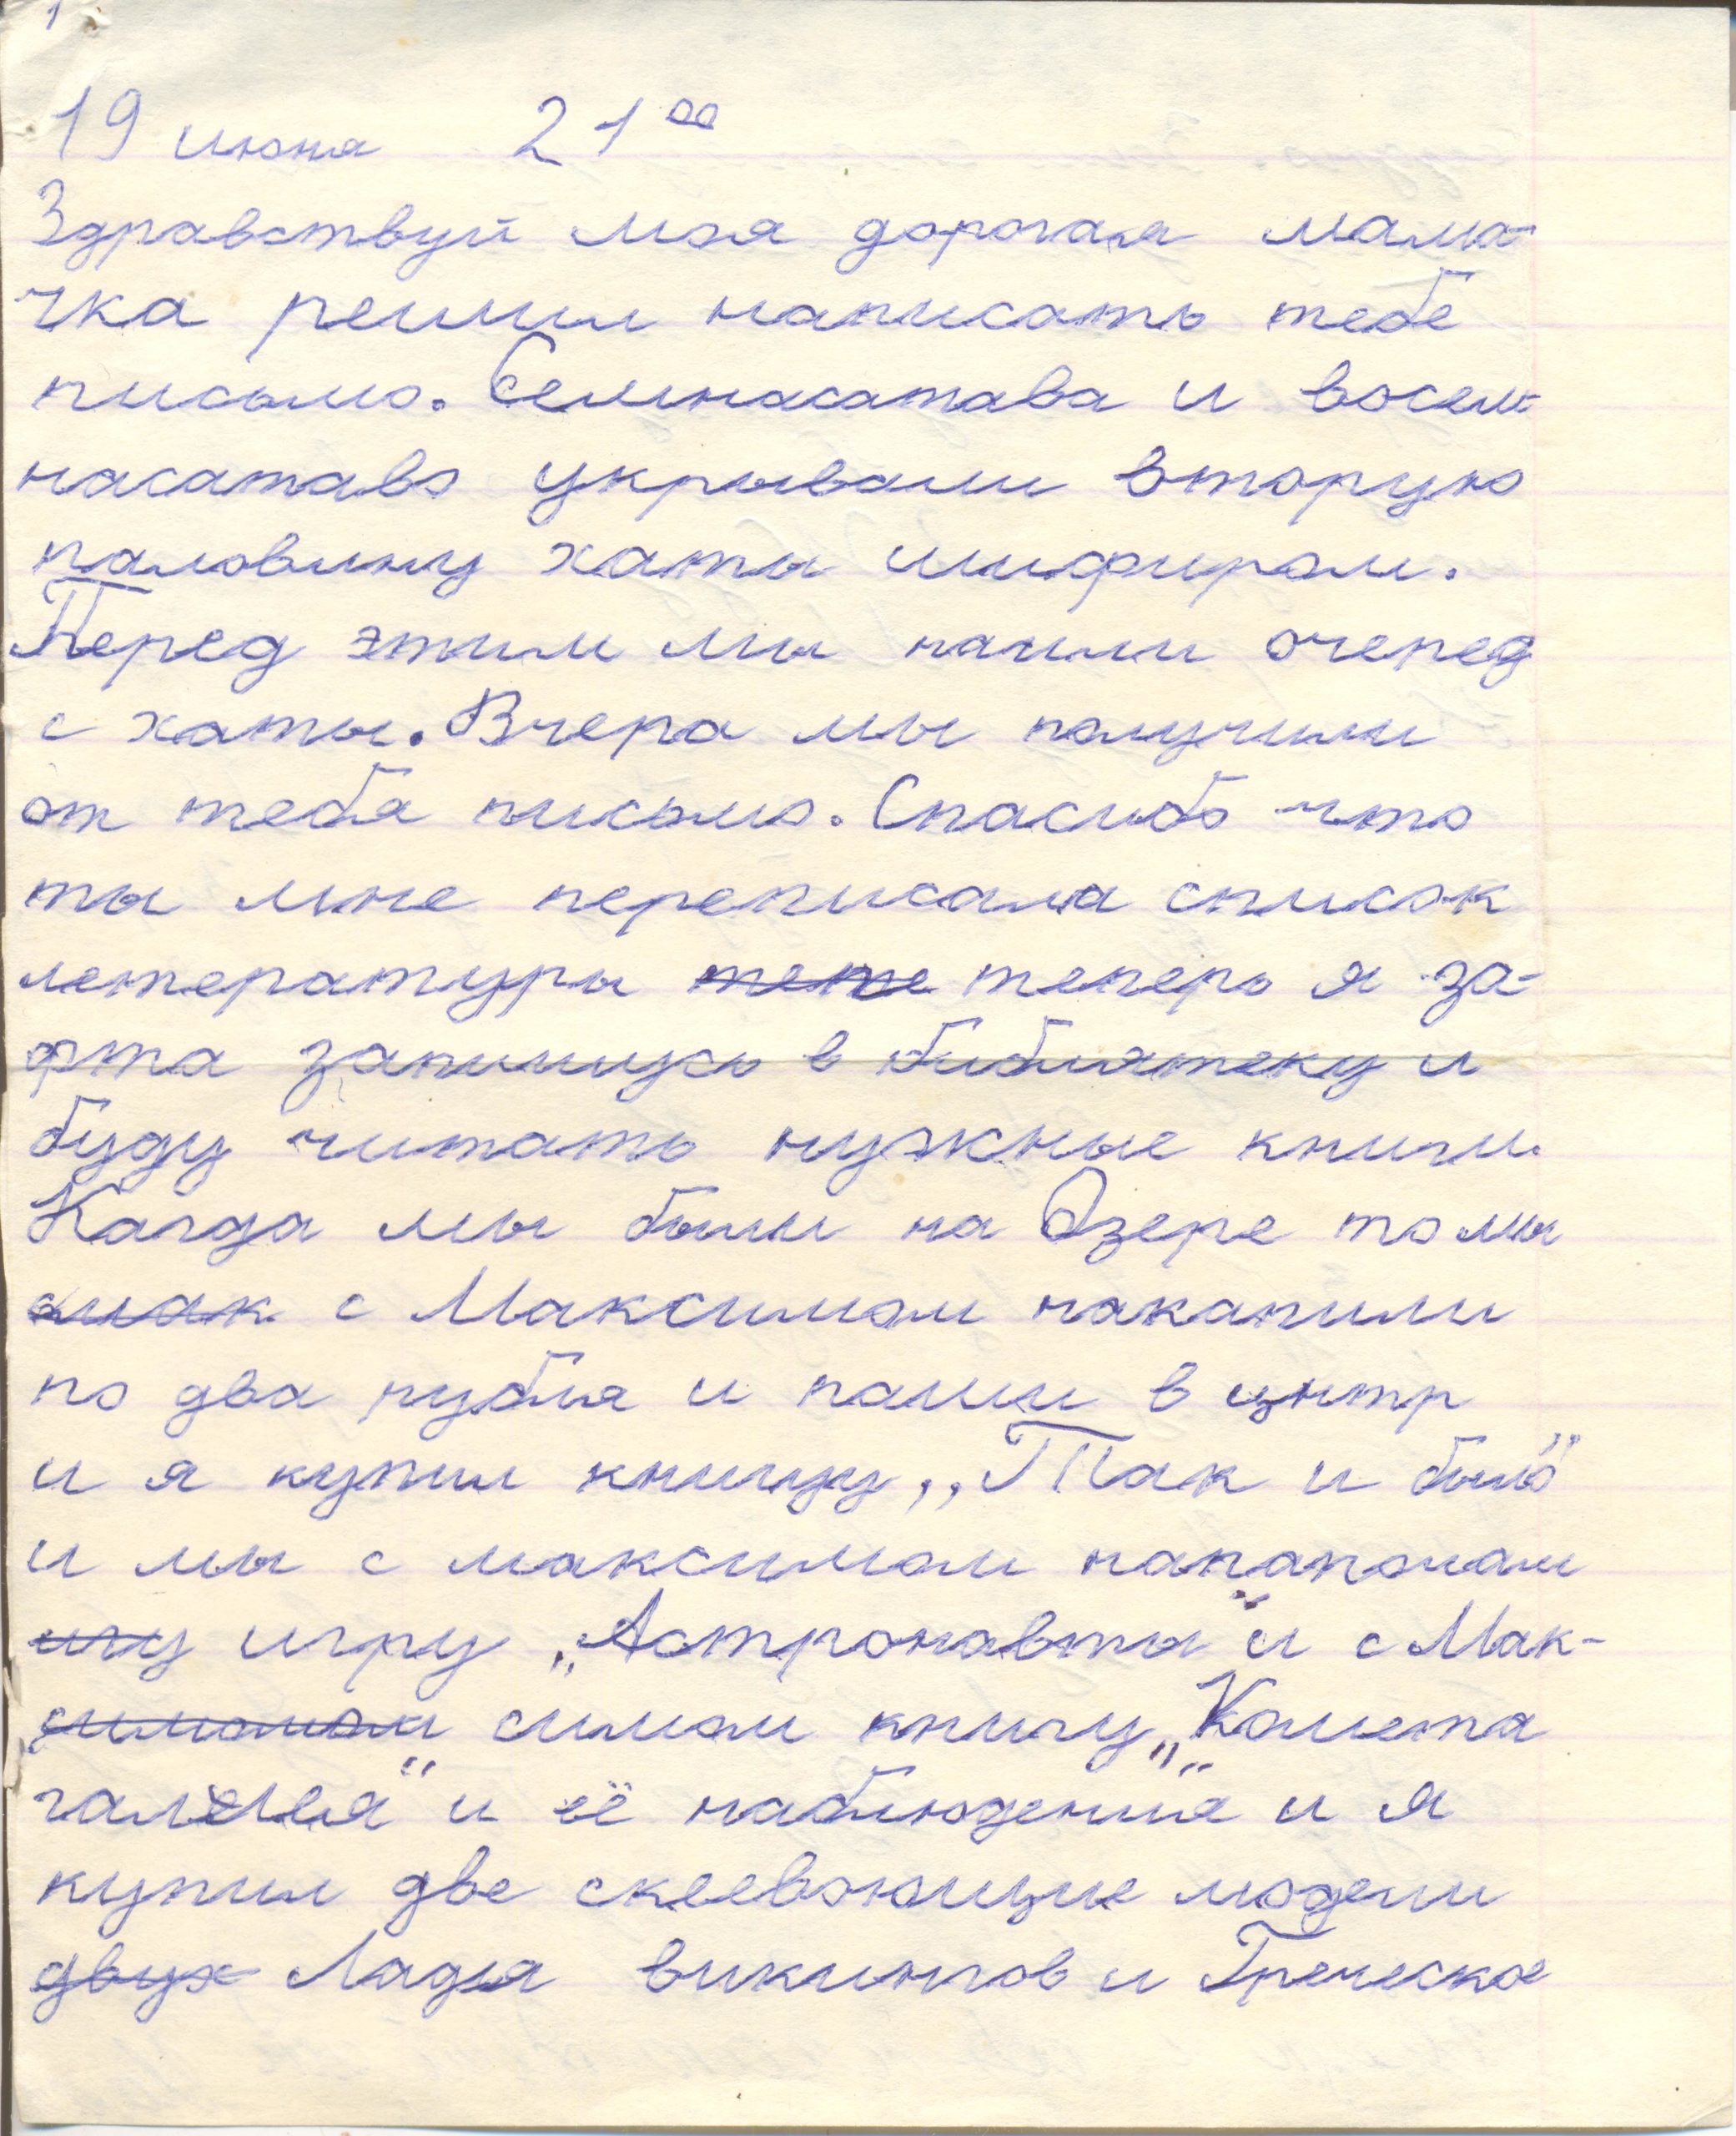 1
19 июня 21 00
Здравствуй моя дорогая мама-
чка решил написать тебе
письмо. Семнасатава и восем-
насатаво укрывали вторую
паловину хаты шифиром.
Перед этим мы
с хаты. Вчера мы получили
от тебя письмо. Спасибо что
ты мне переписала список
летературы тепе теперь я за-
фта запишусь в библиятеку и
буду читать нужные книги.
Кагда мы были на Озере то мы
с Максимом накапили
по два рубля и пашли в цнтр
и я купил книгу „Так и было"
и мы с максимом напапола
игу игру „Астронавты" и с Мак-
симом книгу „Комета
галлея" и её наблюдения и я
купил две модели
двух Ладья викингов и Греческое